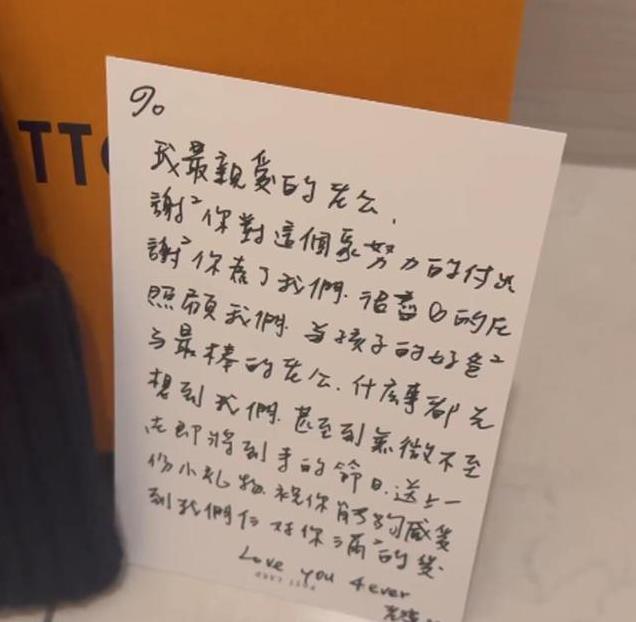 TTO
go
我最親愛的老公,
謝²你對這個家努力的付出
謝²你為了我們.
照顧我們. 當孩子的好爸²
與最棒的老公. 什麼事都先
想到我們. 甚至到無微不至
在即將到來的節日.送上一
份小礼物.祝你能夠感受
到我們仨對你滿²的愛.
Love you 4ever